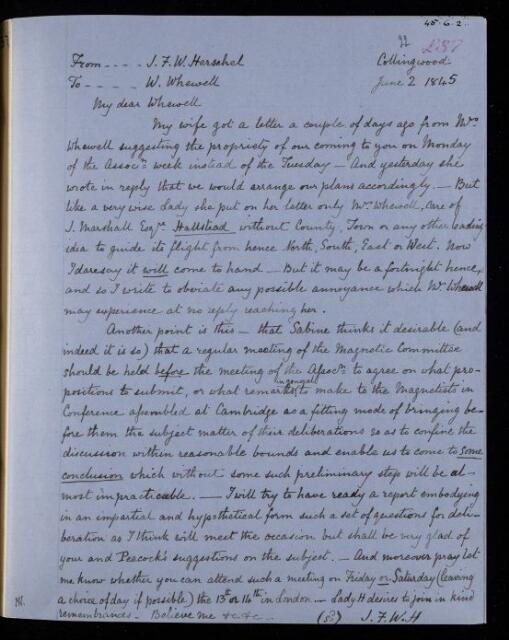 45.6.2
22 237
From - - - - J. F. W. Herschel Collingwood
To - - - - - W. Whewell June 2 1845
My dear Whewell
My wife got a letter a couple of days ago from Mrs
Whewell suggesting the propriety of our coming to you on Monday
of the Assocn week instead of the Tuesday - And yesterday she
wrote in reply that we would arrange our plans accordingly. - But
like a very wise Lady she put on her letter only Mrs. Whewell, Care of
J. Marshall Esqre. Hallstead without County, Town or any other leading
idea to guide its flight from hence North, South, East or West. Now
I daresay it will come to hand - But it may be a fortnight hence,
and so I write to obviate any possible annoyance which Mrs Whewell
may experience at no reply reaching her.
Another point is this - that Sabine thinks it desirable (and
indeed it is so) that a regular meeting of the Magnetic Committee
should be held before the meeting of the Assocn. to agree on what pro-
positions to submit, or what remarks in general to make to the Magnetists in
Conference assembled at Cambridge as a fitting mode of bringing be-
fore them the subject matter of their deliberations so as to confine the
discussion within reasonable bounds and enable us to come to some
conclusion which without some such preliminary step will be al-
most impracticable. - I will try to have ready a report embodying
in an impartial and hypothetical form such a set of questions for deli-
beration as I think will meet the occasion but shall be very glad of
your and Peacock's suggestions on the subject. - And moreover pray let
me know whether you can attend such a meeting on Friday or Saturday (leaving
a choice of day if possible) the 13th or 14th in London - Lady H desires to join in kind
remembrances - Believe me &c &c (sd) J. F. W. H